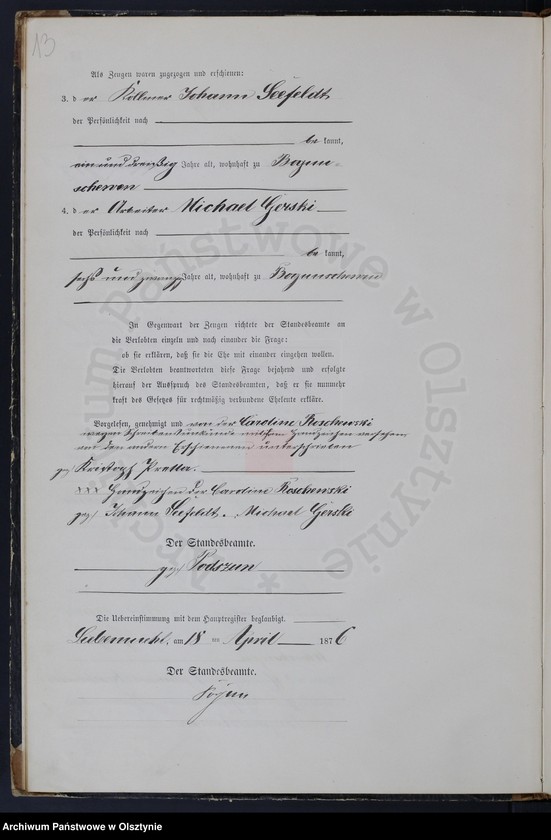 13
Als Zeugen waren zugezogen und erschienen:
3. der Köllmer Johann Seefeldt
der Persönlichkeit nach
bekannt,
ein und dreißig Jahre alt, wohnhaft zu Bogun-
schewen
4. der Arbeiter Michael Gorski
der Persönlichkeit nach
bekannt,
sechs und zwanzig Jahre alt, wohnhaft zu Bogunschewen
In Gegenwart der Zeugen richtete der Standesbeamte an
die Verlobten einzeln und nach einander die Frage:
ob sie erklären, daß sie die Ehe mit einander eingehen wollen.
Die Verlobten beantworteten diese Frage bejahend und erfolgte
hierauf der Ausspruch des Standesbeamten, daß er sie nunmehr
kraft des Gesetzes für rechtmäßig verbundene Eheleute erkläre.
Vorgelesen, genehmigt und von der Caroline Koschewski
wegen Schreibensunkunde mit Handzeichen versehen,
von den andern Erschienenen unterschrieben
gez. Pretta.
XXX Handzeichen der Caroline Koschewski
gez. Johann Seefeldt. Michael Gorski
Der Standesbeamte.
gez. Podszun
Die Uebereinstimmung mit dem Hauptregister beglaubigt.
Liebemühl, am 18 ten April 1876
Der Standesbeamte.
Archiwum Państwowe w Olsztynie
Archiwum Państwowe w Olsztynie